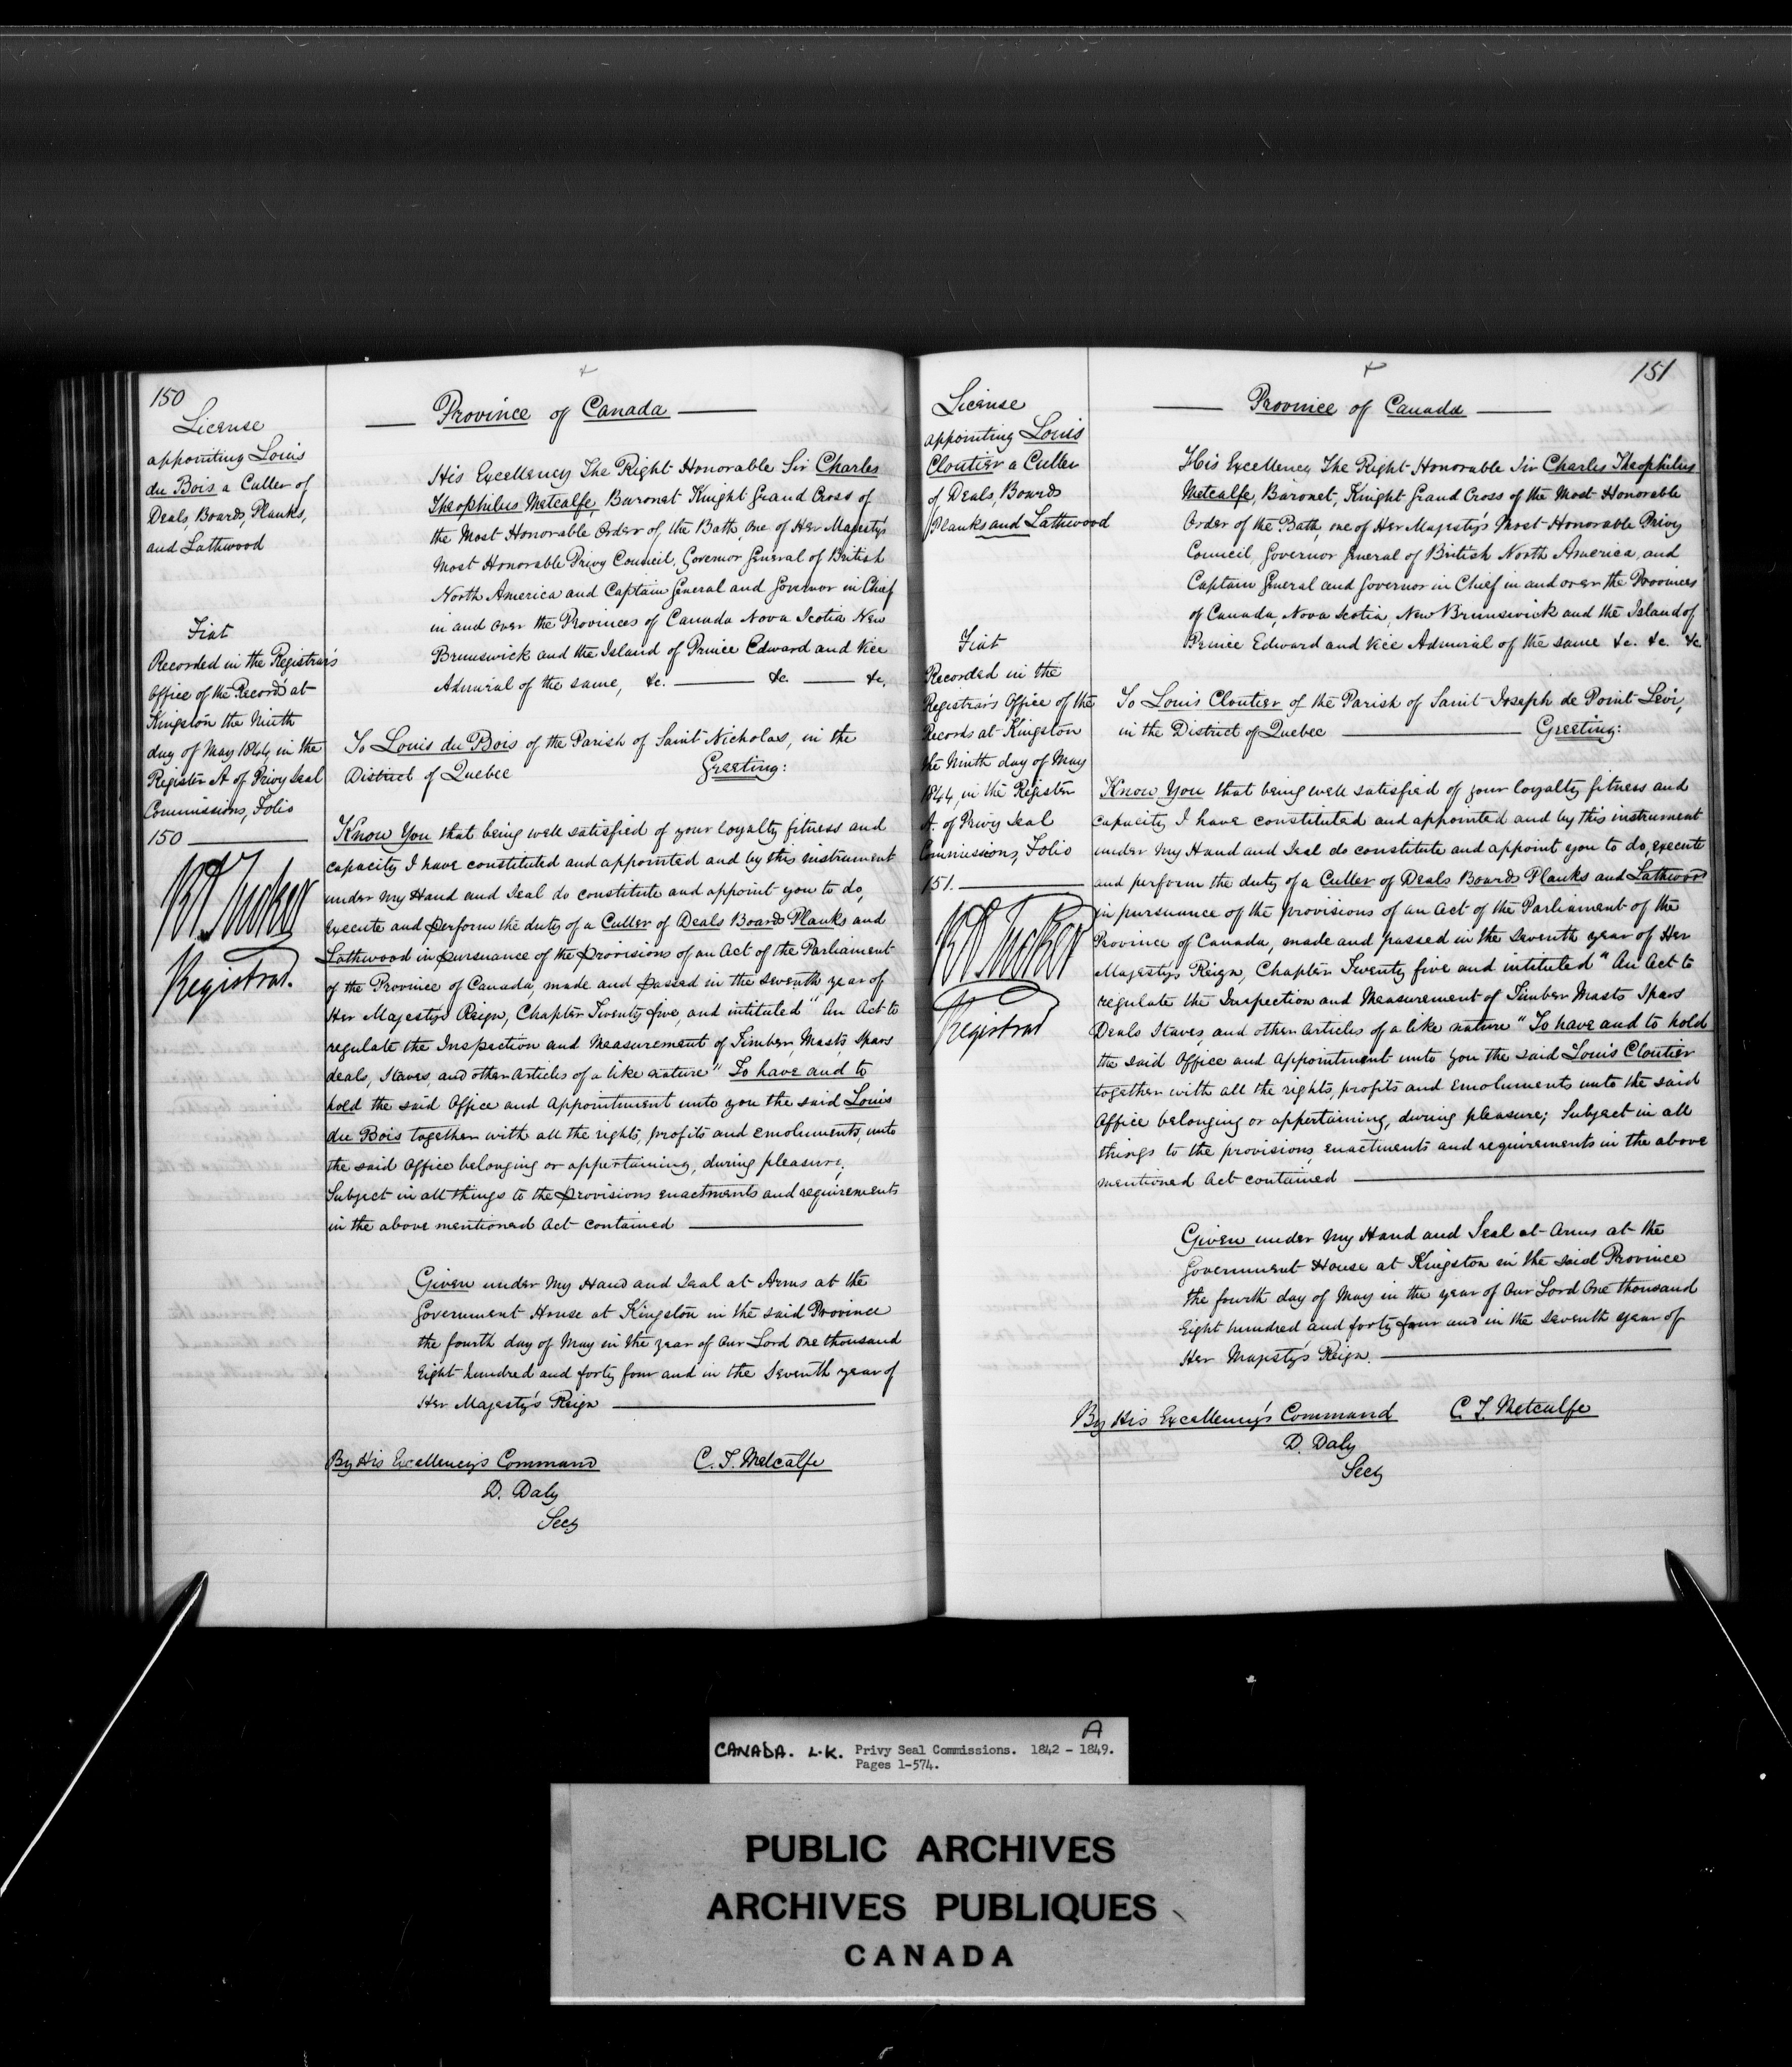 150
License
appointing Louis
du Bois a Culler of
Deals, Boards, Planks,
and Lathwood
Fiat
Recorded in the Registrar's
Office of the Records at
Kingston the Ninth
day of May 1844, in the
Register A. of Privy Seal
Commissions, Folio
150
R A Tucker
Registrar.
Province of Canada
His Excellency The Right Honorable Sir Charles
Theophilus Metcalfe, Baronet Knight Grand Cross of
the Most Honorable Order of, the Bath, one of Her Majesty's
Most Honorable Privy Council, Governor General of British
North America and Captain General and Governor in Chief
in and over the Provinces of Canada Nova Scotia New
Brunswick and the Island of Prince Edward and Vice
Admiral of the same, &c. &c &c.
To Louis du Bois of the Parish of Saint Nicholas, in the
District of Quebec Greeting:
Know You that being well satisfied of your loyalty fitness and
capacity I have constituted and appointed and by this instrument
under My Hand and Seal do constitute and appoint you to do,
execute and perform the duty of a Culler of Deals Boards Planks and
Lathwood in pursuance of the provisions of an Act of the Parliament
of the Province of Canada, made and passed in the seventh year of
Her Majesty's Reign, Chapter Twenty five, and intituled "An Act to
regulate the Inspection and Measurement of Timber, Masts, Spars
deals, Staves, and other articles of a like nature" To have and to
hold the said Office and Appointment unto you the said Louis
du Bois together with all the rights, profits and emoluments, unto
the said Office belonging or appertaining, during pleasure;
Subject in all things to the provisions enactments and requirements
in the above mentioned Act contained
Given under My Hand and Seal at Arms at the
Government House at Kingston in the said Province
the fourth day of May in the year of Our Lord one thousand
Eight hundred and forty four and in the Seventh year of
Her Majesty's Reign
By His Excellency's Command C. T. Metcalfe
D. Daly
Secy
151
License
appointing Louis
Cloutier a Culler
of Deals, Boards
Planks and Lathwood
Fiat
Recorded in the
Registrar's Office of the
Records at Kingston
the Ninth day of May
1844, in the Register
A. of Privy Seal
Commissions, Folio
151.
R A Tucker
Registrar
Province of Canada
His Excellency The Right Honorable Sir Charles Theophilus
Metcalfe, Baronet, Knight Grand Cross of the Most Honorable
Order of the Bath, one of Her Majesty's Most Honorable Privy
Council, Governor General of British North America, and
Captain General and Governor in Chief in and over the Provinces
of Canada, Nova Scotia, New Brunswick and the Island of
Prince Edward and Vice Admiral of the same &c. &c. &c
To Louis Cloutier of the Parish of Saint Joseph de Point Levi,
in the District of Quebec Greeting:
Know You that being well satisfied of your loyalty fitness and
capacity I have constituted and appointed and by this instrument
under My Hand and Seal do constitute and appoint you to do, execute
and perform the duty of a Culler of Deals Boards Planks and Lathwood
in pursuance of the provisions of an Act of the Parliament of the
Province of Canada, made and passed in the seventh year of Her
Majesty's Reign, Chapter Twenty five and intituled "An Act to
regulate the Inspection and Measurement of Timber Masts Spars
Deals Staves, and other articles of a like nature" To have and to hold
the said Office and Appointment unto you the said Louis Cloutier
together with all the rights, profits and emoluments unto the said
Office belonging or appertaining, during pleasure; Subject in all
things to the provisions, enactments and requirements in the above
mentioned Act contained
Given under My Hand and Seal at Arms at the
Government House at Kingston in the said Province
the fourth day of May in the year of Our Lord One thousand
Eight hundred and forty four and in the seventh year of
Her Majesty's Reign.
By His Excellency's Command C. T. Metcalfe
D. Daly
Secy
A
CANADA. L.K. Privy Seal Commissions. 1842 - 1849.
Pages 1-574.
PUBLIC ARCHIVES
ARCHIVES PUBLIQUES
CANADA